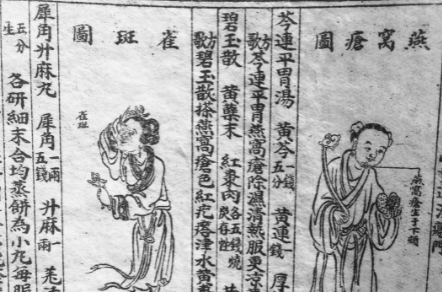 燕窩瘡圖
燕窩瘡生于下頦
芩連平胃湯 黃芩一錢五分 黃連一錢 厚
方歌 芩連平胃燕窩瘡除濕清熱服更
碧玉散 黃蘗末 紅棗肉各五錢燒灰存性
方歌 碧玉散搽燕窩瘡色紅疙瘩津水黃
雀斑圖
雀斑
犀角升麻丸 犀角一兩五錢 升麻一兩 羌
生五分 各研細末合均蒸餅為小丸每服